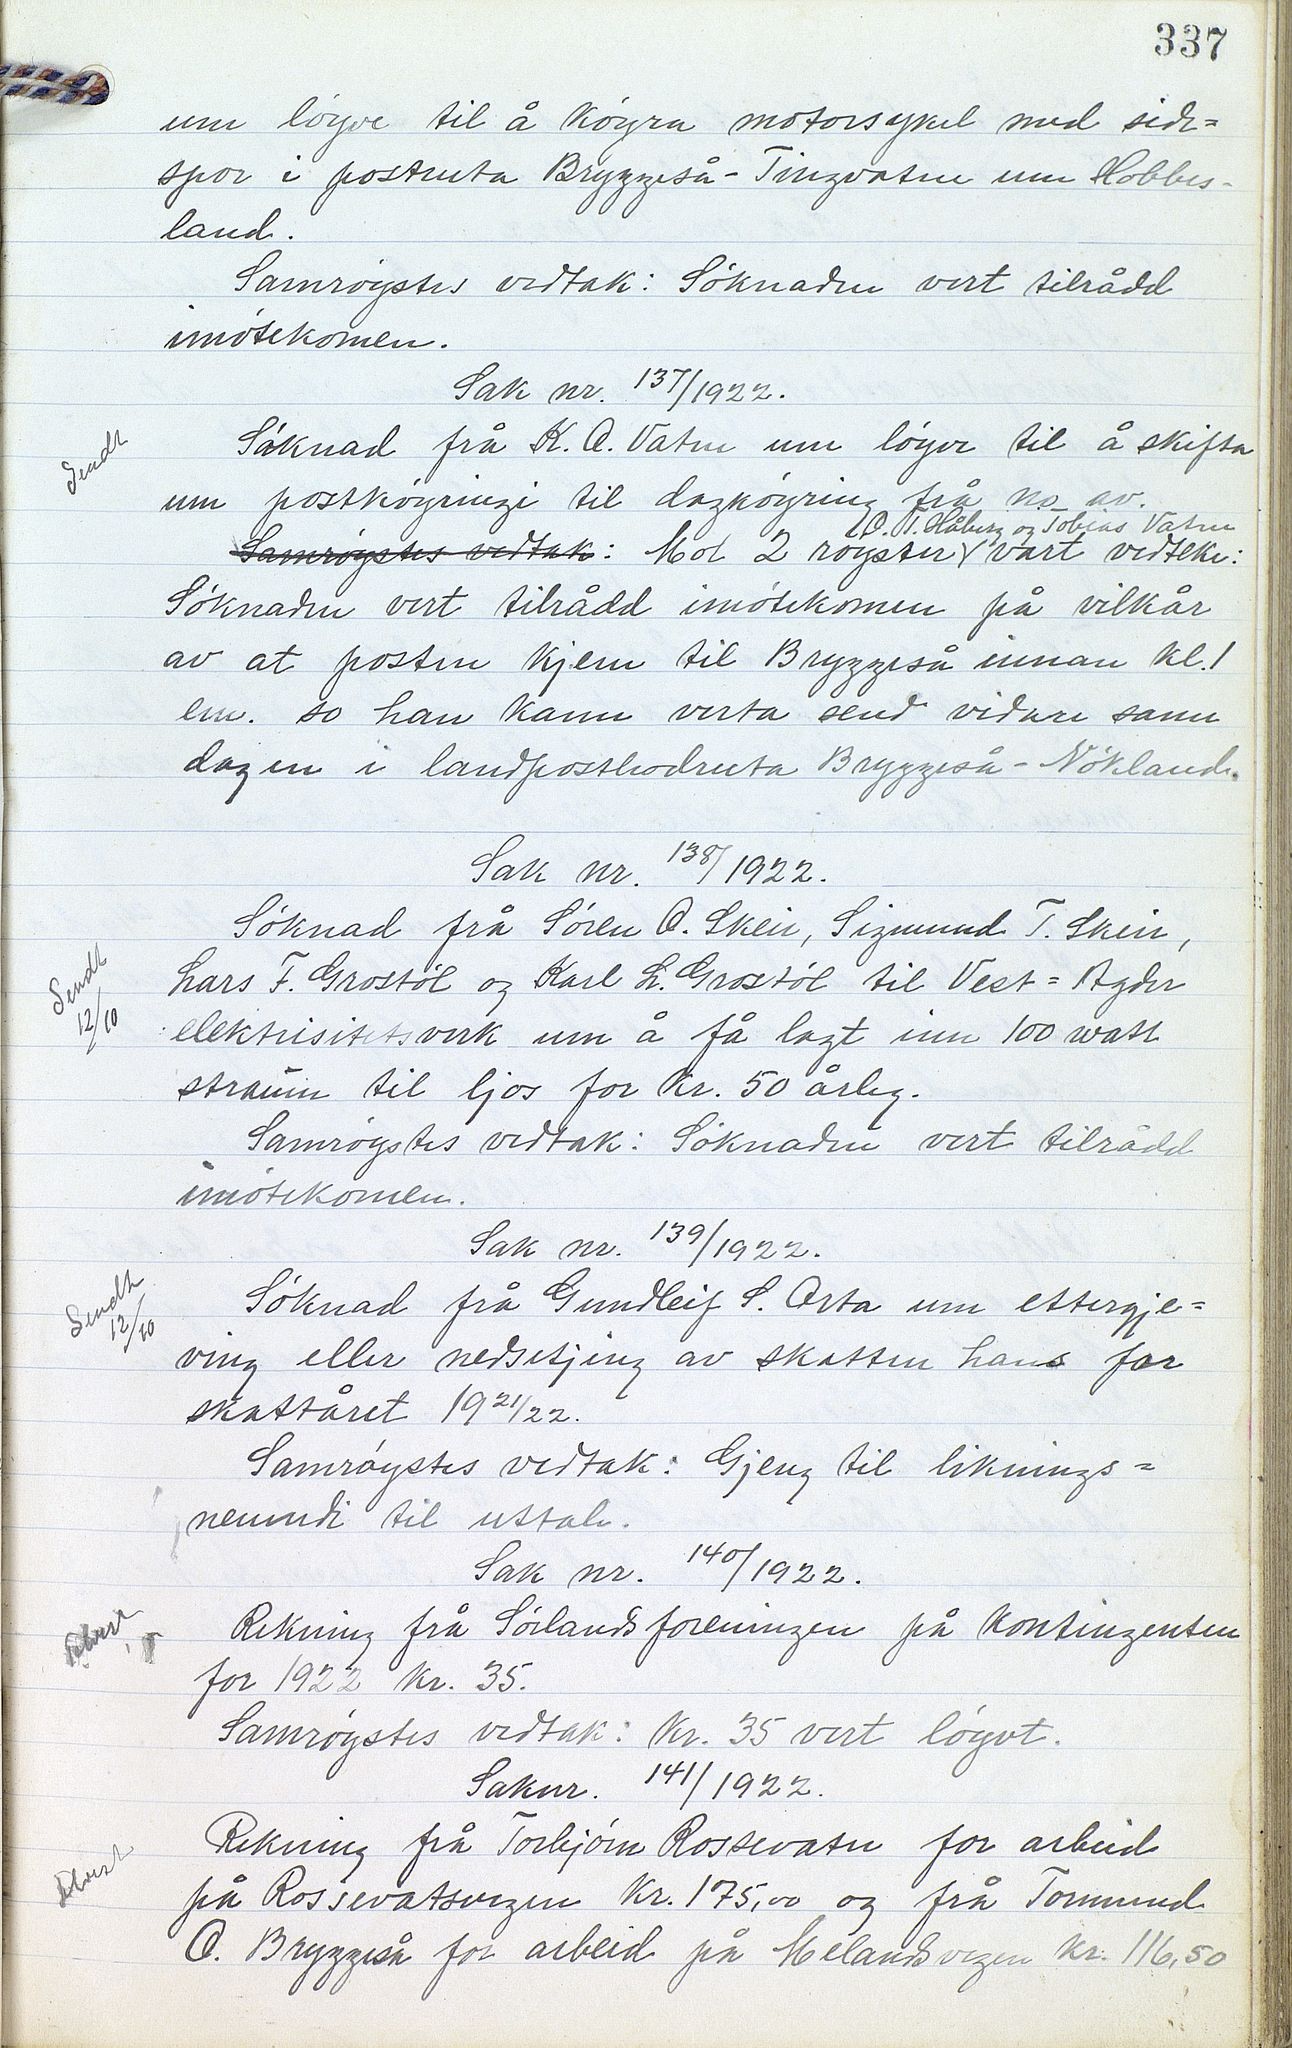 337
um løyve til å køyra motorsykel med side=
spor i postruta Bryggeså - Tingvatne um Hobbes-
land.
Samrøystes vedtak: Søknaden vert tilrådd
imøtekomen.
Sak nr. 137/1922.
Sendt
Søknad frå K. O. Vatne um løyve til å skifta
um postkøyringi til dagkøyring frå no av.
O. T. Håberg og Tobias Vatne
Samrøystes vedtak: Mot 2 røyster vart vedteke:
Søknaden vert tilrådd imøtekomen på vilkår
av at posten kjem til Bryggeså innan kl. 1
em. so han kann verta send vidare same
dagen i landpostbodruta Bryggeså - Nökland.
Sak nr. 138/1922.
Søknad frå Søren O. Skeie, Sigmund T. Skeie,
Sendt 12/10
Lars F. Grostøl og Karl L. Grostøl til Vest=Agder
elektrisitetsverk um å få lagt inn 100 watt
straum til ljos for kr. 50 årleg.
Samrøystes vedtak: Søknaden vert tilrådd
imøtekomen.
Sak nr. 139/1922.
Sendt 12/10
Søknad frå Gundleif S. Osta um ettergje=
ving eller nedsetjing av skatten hans for
skattåret 1921/22.
Samrøystes vedtak: Gjeng til liknings=
nemndi til uttale.
Sak nr. 140/1922.
Rekning frå Sørlandsforeningen på kontingenten
for 1922 kr. 35.
Samrøystes vedtak: Kr. 35 vert løyvt.
Sak nr. 141/1922.
Rekning frå Torbjørn Rossevatn for arbeid
på Rossevatsvegen kr. 175,00 og frå Tormund
O. Bryggeså for arbeid på Melandsvegen kr. 116,50